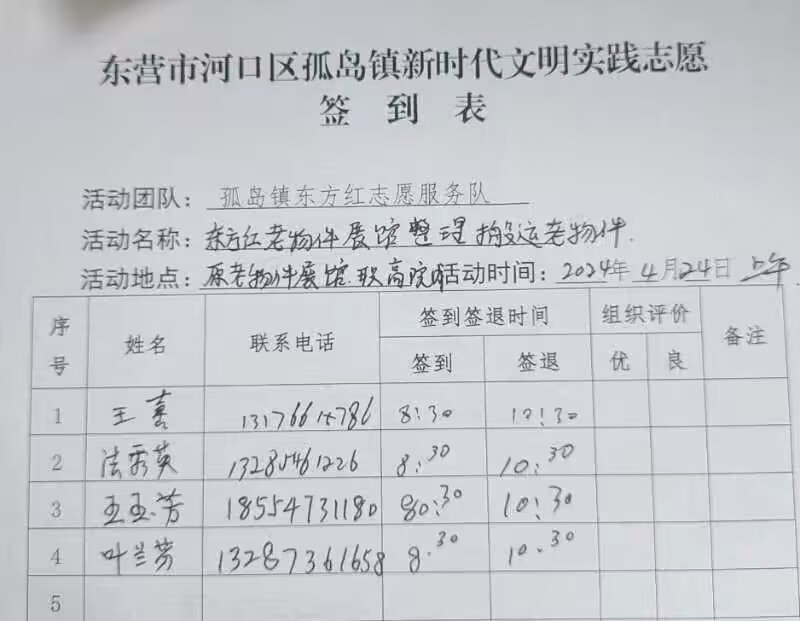 东营市河口区孤岛镇新时代文明实践志愿
签 到 表
活动团队: 孤岛镇东方红志愿服务队
活动名称: 东方红老物件展馆整理搬运老物件.
活动地点: 原老物件展馆.联高院内活动时间: 2024年 4月24日 上午
序号 姓名 联系电话 签到签退时间 组织评价 备注
签到 签退 优 良
1 王喜 8:30 10:30
2 法秀英 13285461226 8:30 10:30
3 王玉芳 18554731180 80:30 10:30
4 叶兰芳 13287361658 8.30 10.30
5